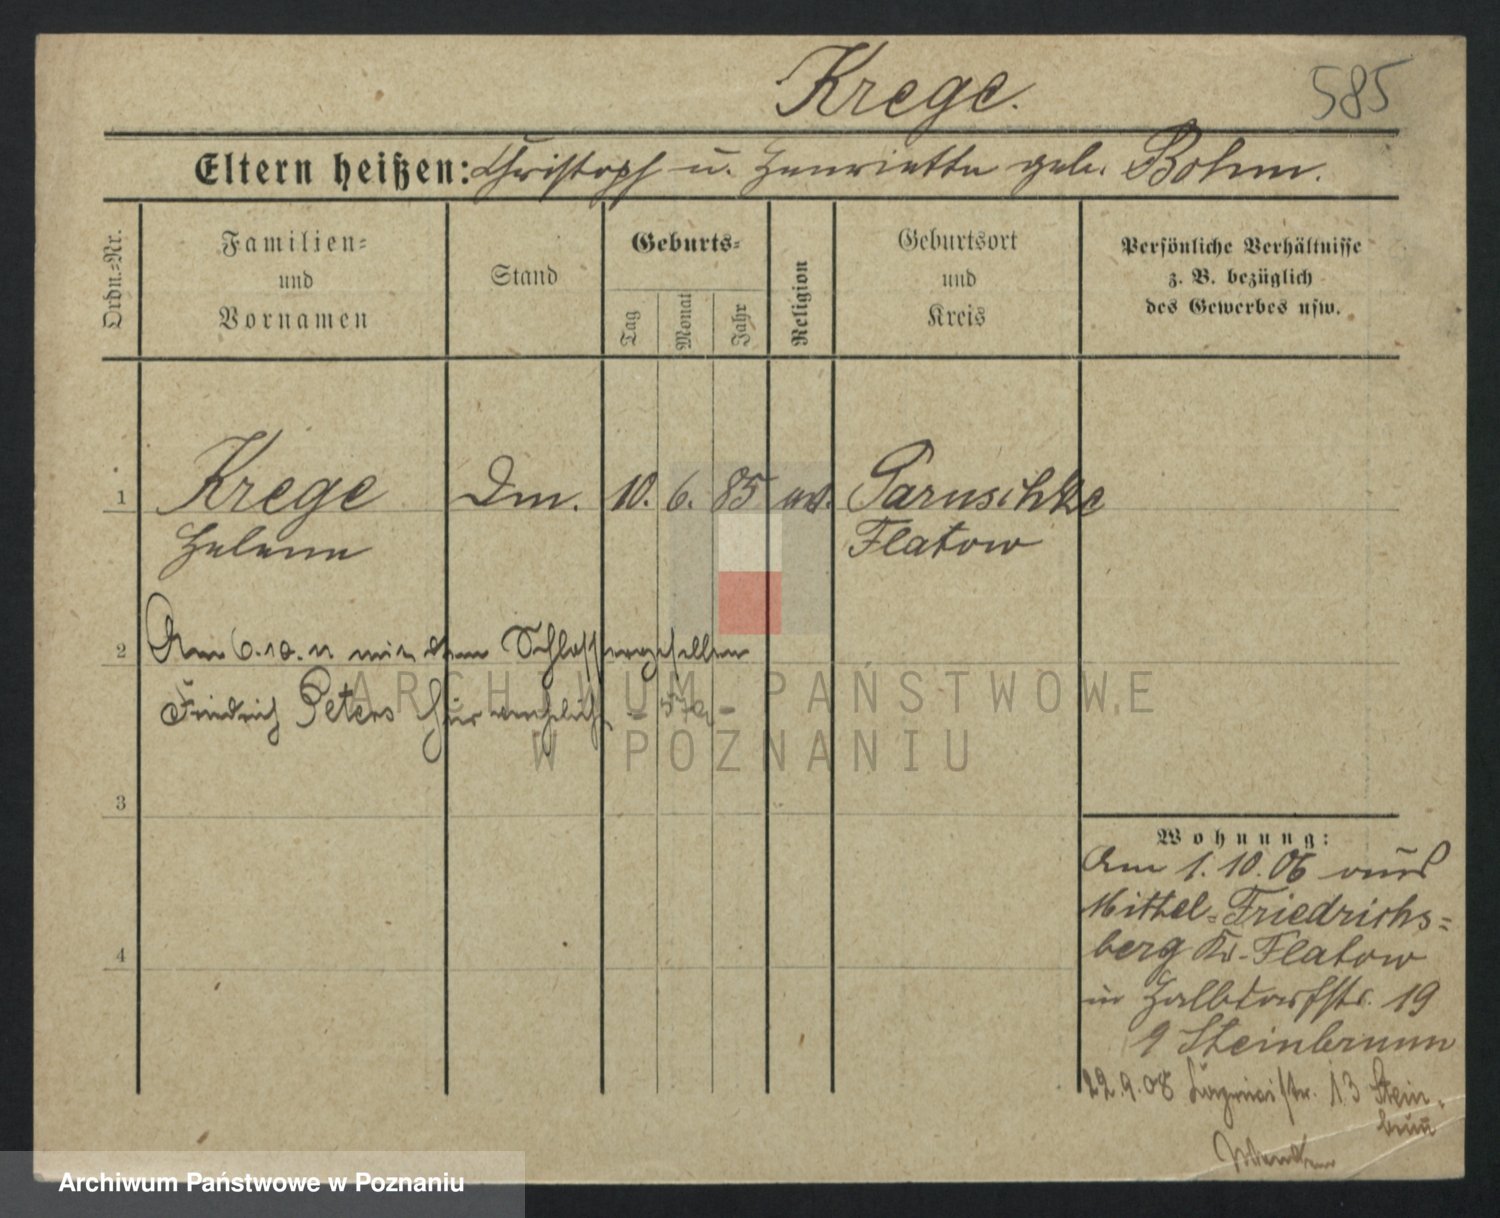 Krege.
585
Eltern heißen: Christoph u. Henriette geb. Bohm.
Ordn.=Nr.
Familien=
und
Vornamen
Stand
Geburts=
Tag
Monat
Jahr
Religion
Geburtsort
und
Kreis
Persönliche Verhältnisse
z. B. bezüglich
des Gewerbes usw.
1 Krege Dm. 10. 6. 85 ev. Paruschke
Helene Flatow
2 Am 6.10. mit dem Schlossergesellen
Friedrich Peters hier verehelicht
3
4
Wohnung:
Am 1. 10. 06 aus
Mittel=Friedrichs=
berg Kr. Flatow
in Halbdorfstr. 19
Steinbrunn
22.9.08 13 Stein=
brunn
ARCHIWUM PAŃSTWOWE
W POZNANIU
Archiwum Państwowe w Poznaniu